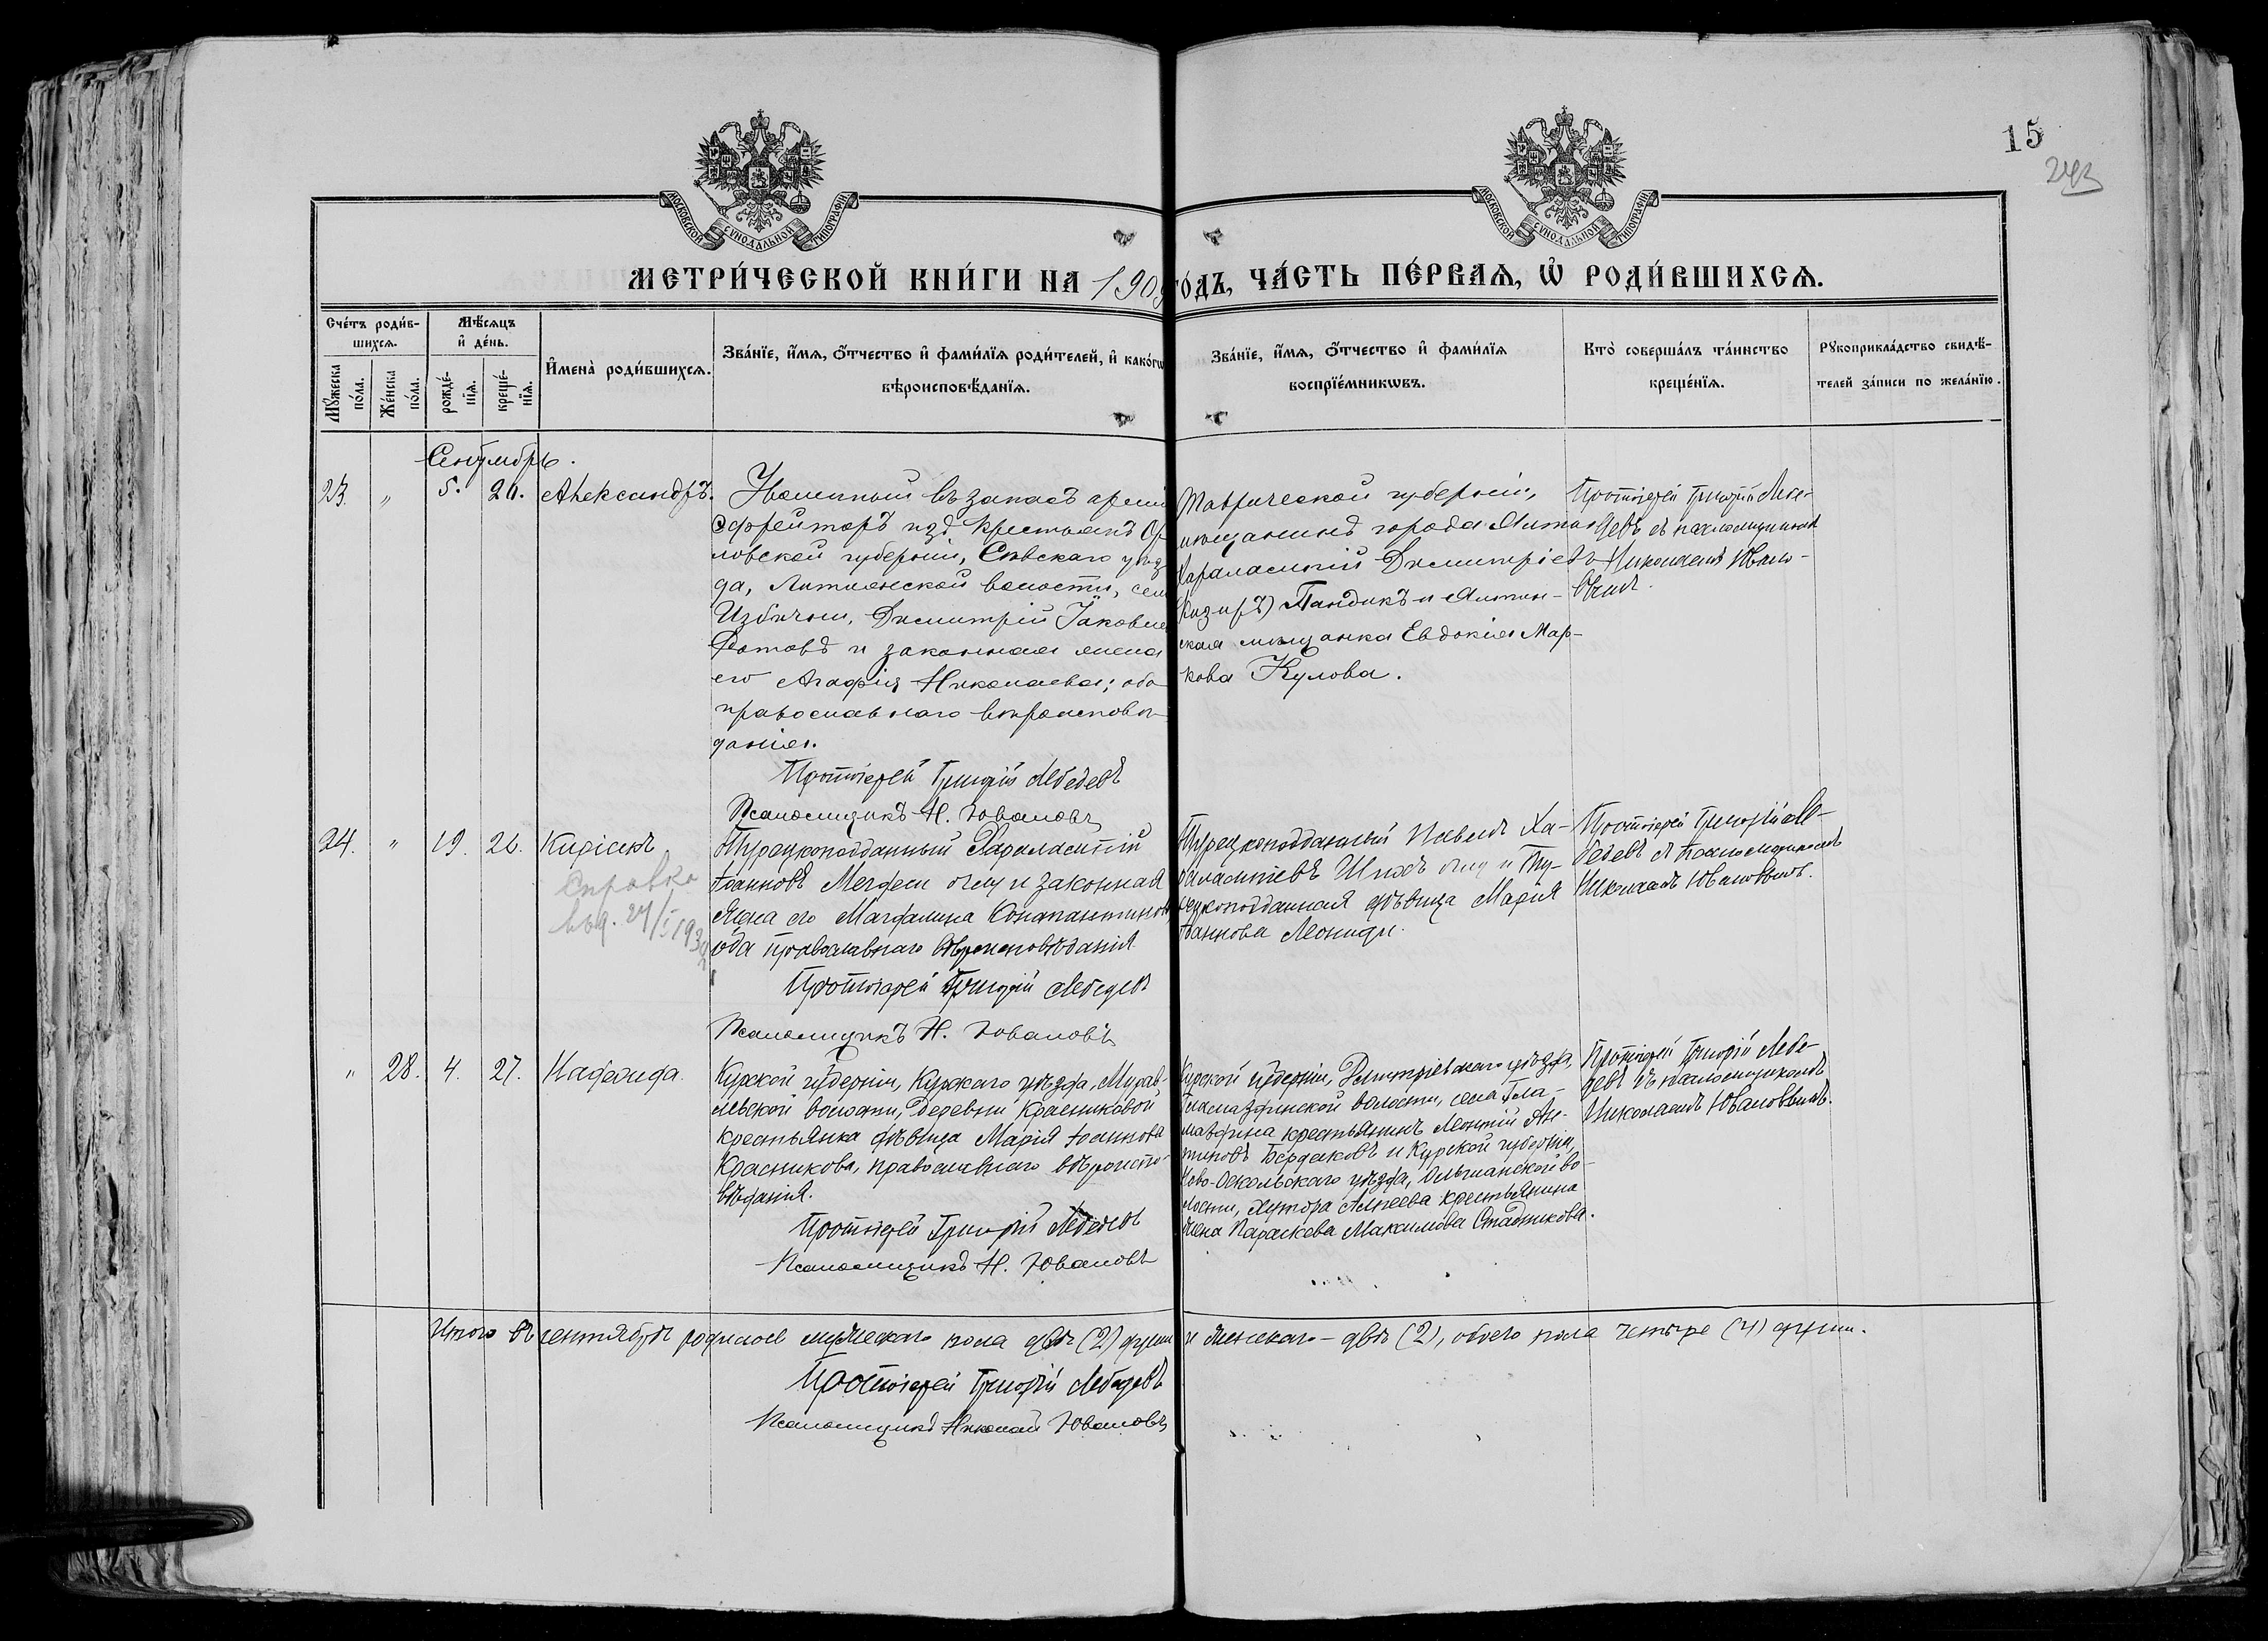 15
243
МОСКОВСКОЙ СѴНОДАЛЬНОЙ ТИПОГРАФІИ
МОСКОВСКОЙ СѴНОДАЛЬНОЙ ТИПОГРАФІИ
МЕТРИ́ЧЕСКОЙ КНИ́ГИ НА 1909 ГО́ДЪ, ЧА́СТЬ ПЕ́РВАѦ, Ѡ҆ РОДИ́ВШИХСѦ.
Сче́тъ роди́в-
шихсѧ.
Мꙋ́жеска по́ла.
Же́нска по́ла.
Мѣ́сѧцъ
и҆ де́нь.
рожде́-
нїѧ.
креще́-
нїѧ.
И҆мена̀ роди́вшихсѧ.
Зва́нїе, и҆́мѧ, ѻ҆́тчество и҆ фами́лїѧ роди́телей, и҆ како́гѡ
вѣроисповѣ́данїѧ.
Зва́нїе, и҆́мѧ, ѻ҆́тчество и҆ фами́лїѧ
воспрїе́мникѡвъ.
Кто̀ соверша́лъ та́инство
креще́нїѧ.
Рꙋкоприкла́дство свидѣ́-
телей за́писи по жела́нїю.
Сентябрь.
23. " 5. 20. Александръ.
Уволенный въ запасъ арміи
Ефрейторъ изъ крестьянъ Ор-
ловской губерніи, Сѣвскаго уѣз-
да, волости, села
Избични, Димитрій Іаковлев
и законная жена
его Агафія Николаева; оба
православнаго вѣроисповѣ-
данія.
Протоіерей Григорій Лебедевъ
Псаломщикъ Н. Юваловъ
Таврической губерніи,
мѣщанинъ города Ялты
Харалампій Димитріевъ
Пандикъ и Ялтин-
ская мѣщанка Евдокія Мар-
кова Кулова.
Протоіерей Григорій Лебе-
девъ съ псаломщикомъ
Николаемъ Ювало-
вымъ.
24. " 19. 20. Киріакъ.
Справка
выд. 27/I 193
Турецкоподданный Харалампій
Іоанновъ оглу и законная
жена его Магдалина Константинова
оба православнаго вѣроисповѣданія
Протоіерей Григорій Лебедевъ
Псаломщикъ Н. Юваловъ
Турецкоподданный Павелъ Ха-
ралампіевъ оглу и Ту-
рецкоподданная дѣвица Марія
Іоаннова Леониди.
Протоіерей Григорій Ле-
бедевъ съ псаломщикомъ
Николаемъ Юваловымъ.
" 28. 4. 27. Надежда.
Курской губерніи, Курскаго уѣзда, Мурав-
левской волости, деревни Красниковой
крестьянка дѣвица Марія Іоаннова
Красникова, православнаго вѣроиспо-
вѣданія.
Протоіерей Григорій Лебедевъ
Псаломщикъ Н. Юваловъ
Курской губерніи, Димитріевскаго уѣзда,
волости, села Гла-
крестьянинъ Леонтій Ан-
типовъ Бердаковъ и Курской губерніи,
Ново-Оскольскаго уѣзда, Ольшанской во-
лости, хутора крестьянина
жена Параскева Максимова Стадникова.
Протоіерей Григорій Лебе-
девъ съ псаломщикомъ
Николаемъ Юваловымъ.
Итого въ сентябрѣ родилось мужескаго пола двѣ (2) души и женскаго - двѣ (2), обоего пола четыре (4) души.
Протоіерей Григорій Лебедевъ
Псаломщикъ Николай Юваловъ